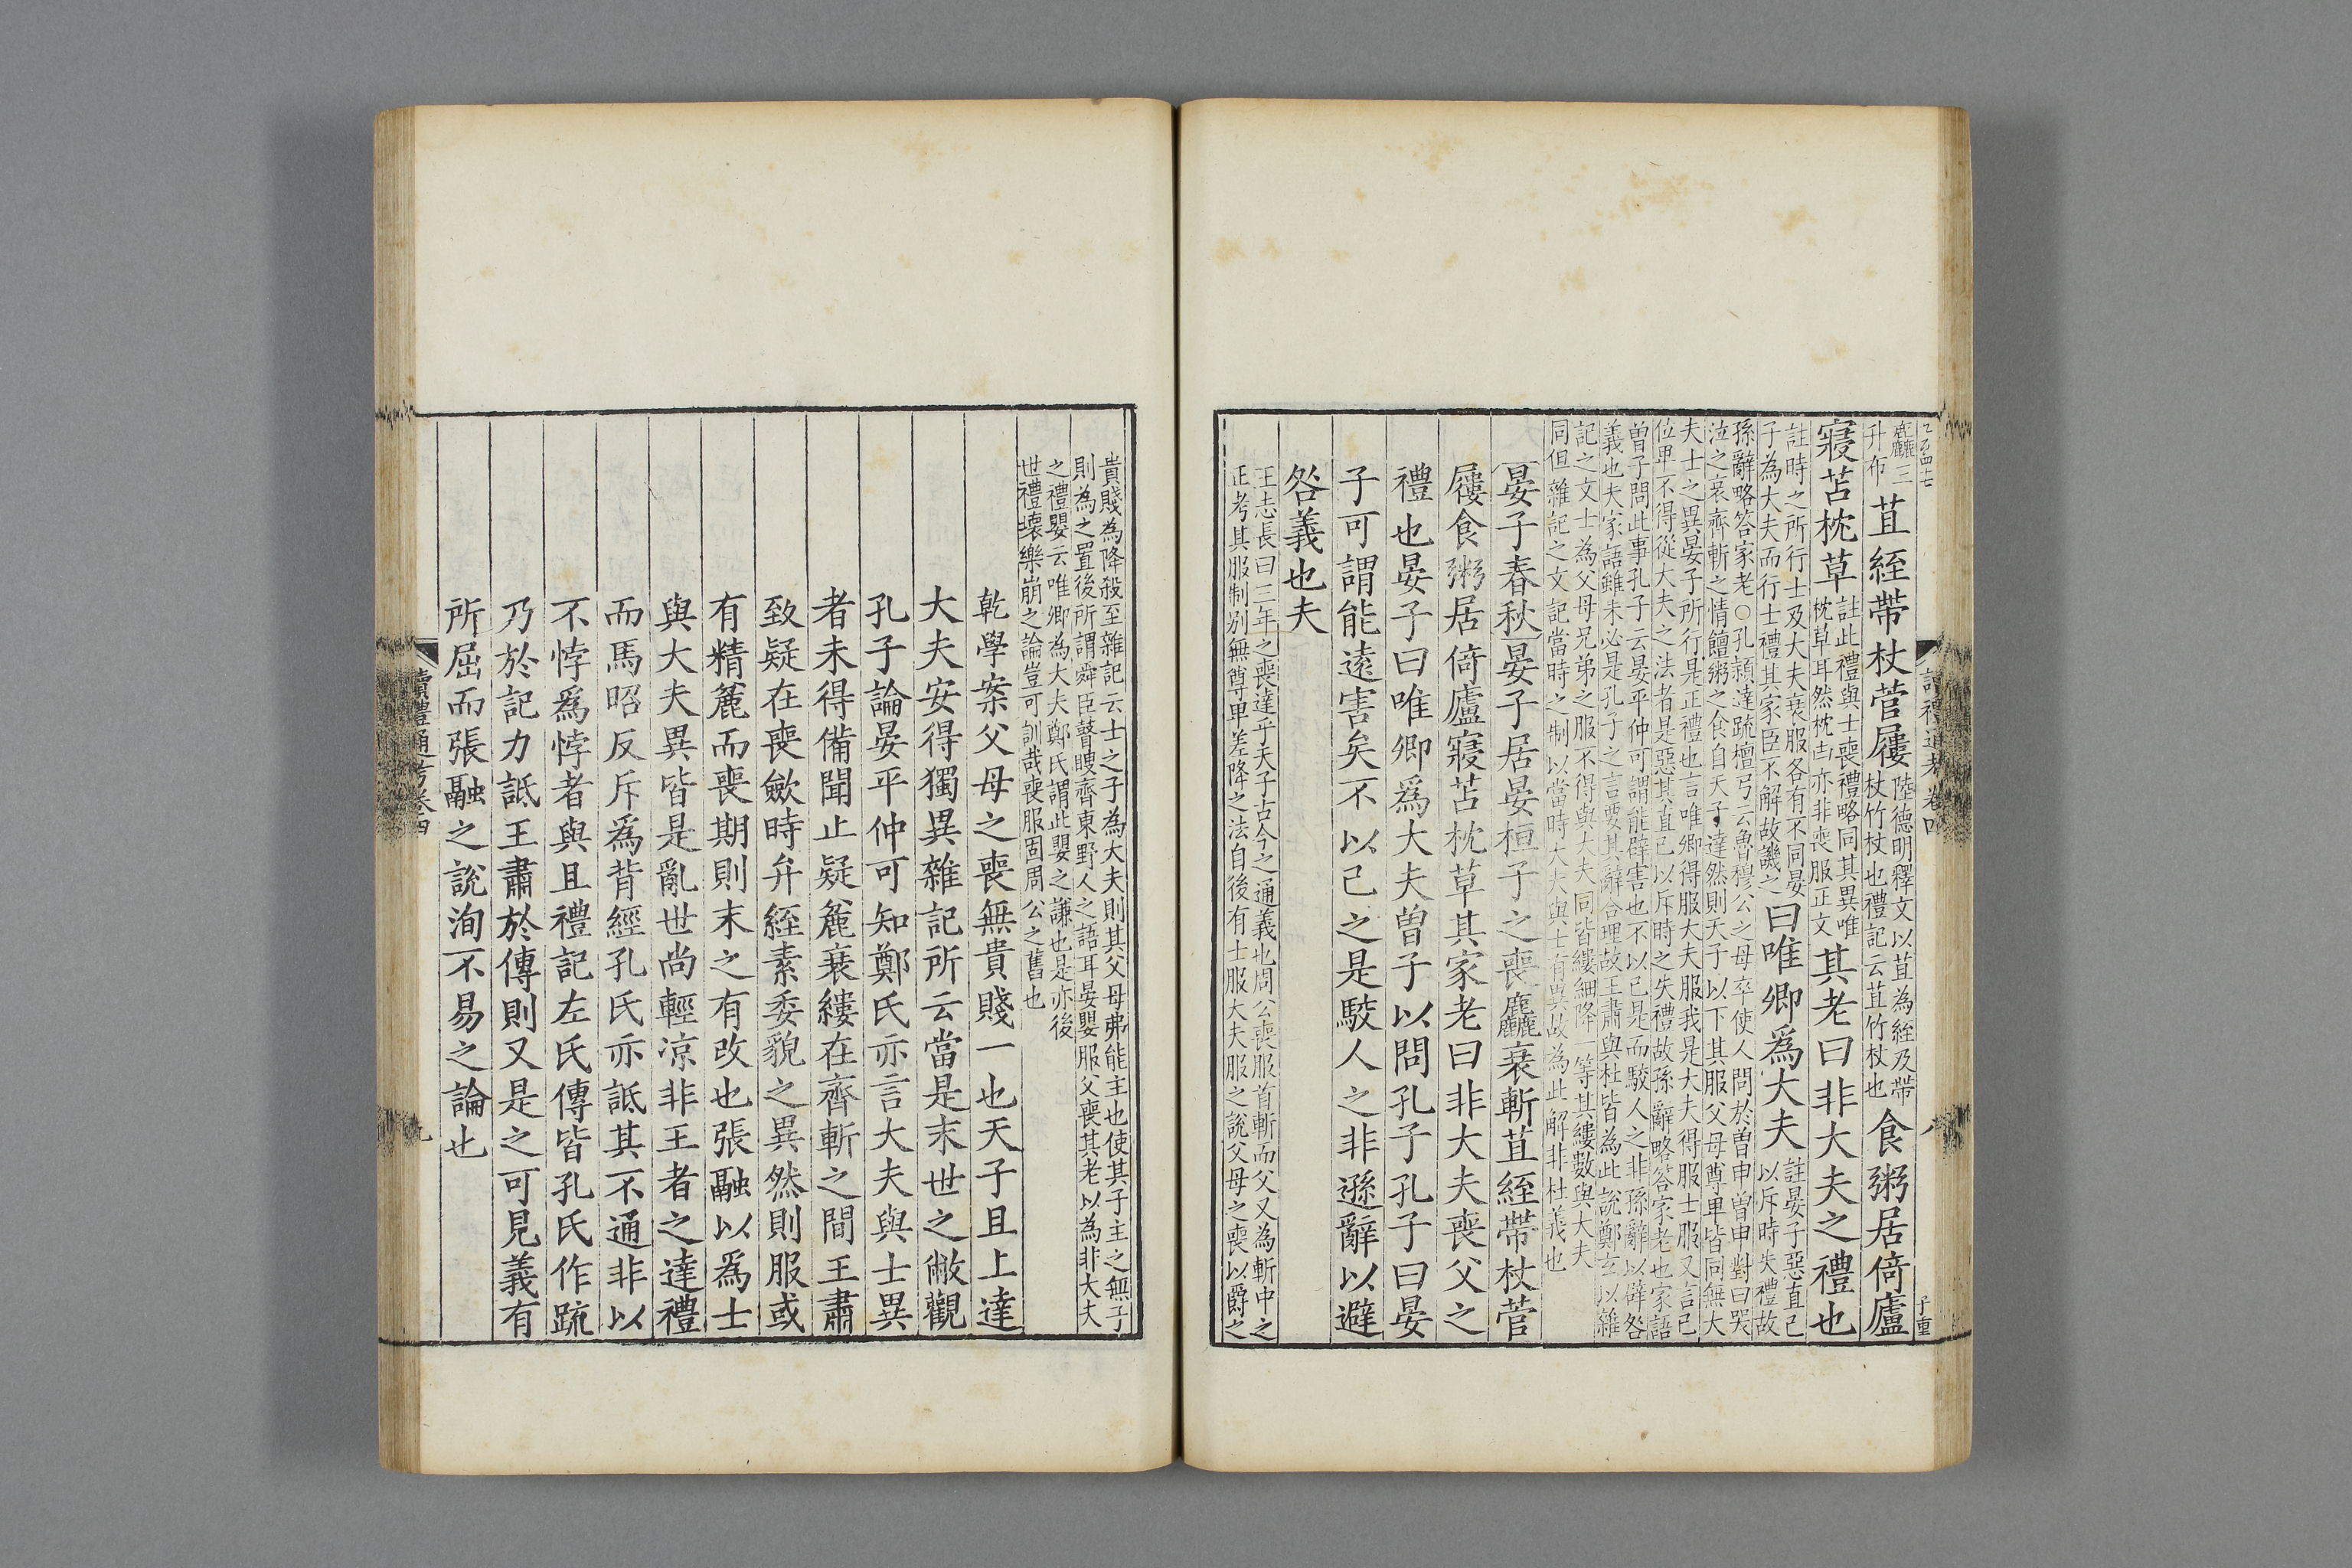 麤三
升布
苴絰帶杖菅屨
陸德明釋文以苴為絰及帶
杖竹杖也禮記云苴竹杖也
食粥居倚廬
寢苫枕草
註此禮與士喪禮略同其異唯
枕草耳然枕凷亦非喪服正文
其老曰非大夫之禮也
註時之所行士及大夫衰服各有不同晏
子為大夫而行士禮其家臣不解故譏之
曰唯卿爲大夫
註晏子惡直己
以斥時失禮故
孫辭略答家老○孔頴達疏檀弓云魯穆公之母卒使人問於曽申曽申對曰哭
泣之哀齊斬之情饘粥之食自天子達然則天子以下其服父母尊卑皆同無大
夫士之異晏子所行是正禮也言唯卿得服大夫服我是大夫得服士服又言己
位卑不得從大夫之法者是惡其直已以斥時之失禮故孫辭略答家老也家語
曽子問此事孔子云晏平仲可謂能辟害也不以已是而駮人之非孫辭以辟咎
義也夫家語雖未必是孔子之言要其辭合理故王肅與杜皆為此說鄭玄以雜
記之文士為父母兄弟之服不得與大夫同皆縷細降一等其縷數與大夫
同但雜記之文記當時之制以當時大夫與士有異故為此解非杜義也
晏子春秋晏子居晏桓子之喪麤衰斬苴絰帶杖菅
屨食粥居倚廬寢苫枕草其家老曰非大夫喪父之
禮也晏子曰唯卿爲大夫曽子以問孔子孔子曰晏
子可謂能遠害矣不以己之是駮人之非遜辭以避
咎義也夫
王志長曰三年之喪達乎天子古今之通義也周公喪服首斬而父又為斬中之
正考其服制别無尊卑差降之法自後有士服大夫服之說父母之喪以爵之
讀禮通考卷四
八
子重
貴賤為降殺至雜記云士之子為大夫則其父母弗能主也使其子主之無子
則為之置後所謂舜臣瞽瞍齊東野人之語耳晏嬰服父喪其老以為非大夫
之禮嬰云唯卿為大夫鄭氏謂此嬰之謙也是亦後
世禮壊樂崩之論豈可訓哉喪服固周公之舊也
乾學案父母之喪無貴賤一也天子且上達
大夫安得獨異雜記所云當是末世之敝觀
孔子論晏平仲可知鄭氏亦言大夫與士異
者未得備聞止疑麄衰縷在齊斬之間王肅
致疑在喪歛時弁絰素委貌之異然則服或
有精麄而喪期則末之有改也張融以爲士
與大夫異皆是亂世尚輕凉非王者之達禮
而馬昭反斥爲背經孔氏亦詆其不通非以
不悖爲悖者與且禮記左氏傳皆孔氏作疏
乃於記力詆王肅於傳則又是之可見義有
所屈而張融之說洵不易之論也
讀禮通考卷四
九